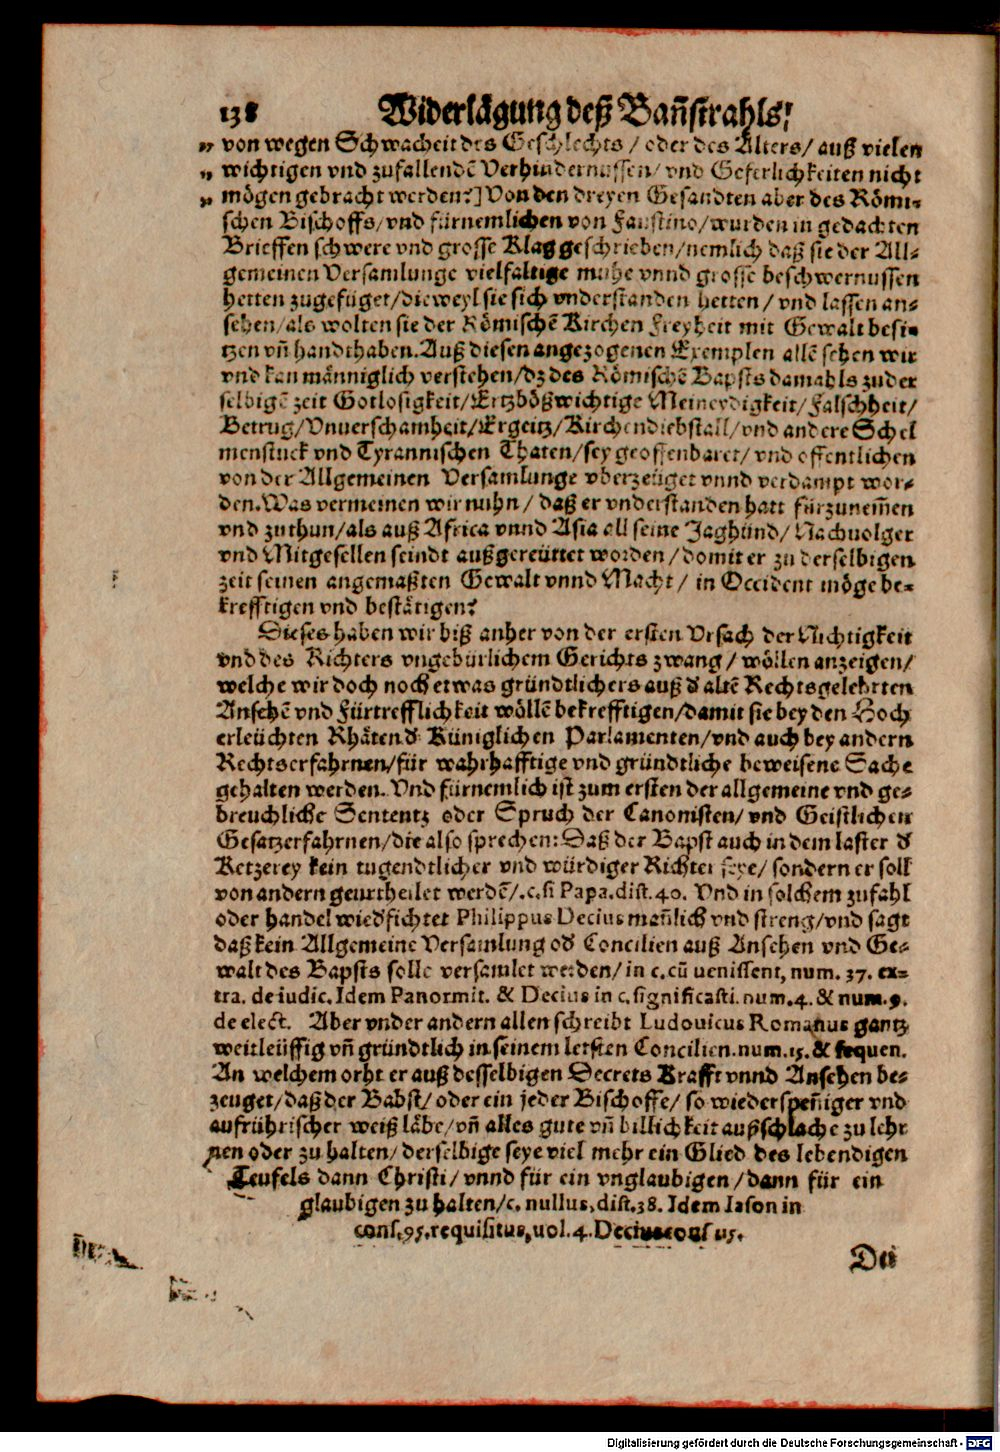 138 Widerlägung deß Bañstrahls/
„ von wegen Schwacheit des Geschlechts / oder des Alters/ auß vielen
„ wichtigen vnd zufallendē Verhindernussen/ vnd Geferlichkeiten nicht
„ mögen gebracht werden?] Von den dreyen Gesandten aber des Römi-
schen Bischoffs/ vnd fürnemlichen von Faustino/ wurden in gedachten
Brieffen schwere vnd grosse Klag geschrieben/ nemlich daß sie der All-
gemeinen Versamlunge vielfaltige muhe vnnd grosse beschwernussen
hetten zugefüget/ dieweyl sie sich vnderstanden hetten / vnd lassen an-
sehen/ als wolten sie der Römischē Kirchen Freyheit mit Gewalt besi-
tzen vñ handthaben. Auß diesen angezogenen Exemplen allē sehen wir
vnd kan männiglich verstehen/ dz des Römischē Bapsts damahls zu der
selbigē zeit Gotlosigkeit/ Ertzbößwichtige Meineydigkeit/ Falschheit/
Betrug/ Vnuerschamheit/ Ergeitz/ Kirchendiebstall/ vnd andere Schel
menstuck vnd Tyrannischen Thaten/ sey geoffenbaret/ vnd offentlichen
von der Allgemeinen Versamlunge vberzeüget vnnd verdampt wor-
den. Was vermeinen wir nuhn / daß er vnderstanden hatt fürzunem̃en
vnd zu thun/ als auß Africa vnnd Asia all seine Jaghünd/ Nachuolger
vnd Mitgesellen seindt außgereüttet worden / domit er zu derselbigen
zeit seinen angemaßten Gewalt vnnd Macht / in Occident möge be-
krefftigen vnd bestätigen?
Dieses haben wir biß anher von der ersten Vrsach der Nichtigkeit
vnd des Richters vngebürlichem Gerichts zwang / wöllen anzeigen/
welche wir doch noch etwas gründtlichers auß đ altē Rechtsgelehrten
Ansehē vnd Fürtrefflichkeit wöllē bekrefftigen/ damit sie bey den Hoch
erleüchten Rhäten đ Küniglichen Parlamenten/ vnd auch bey andern
Rechtserfahrnen/ für wahrhafftige vnd gründtliche beweisene Sache
gehalten werden. Vnd fürnemlich ist zum ersten der allgemeine vnd ge-
breuchliche Sententz oder Spruch der Canonisten/ vnd Geistlichen
Gesatzerfahrnen/ die also sprechen: Daß der Bapst auch in dem laster đ
Ketzerey kein tugendtlicher vnd würdiger Richter seye/ sondern er soll
von andern geurtheilet werdē/. c. si Papa. dist. 40. Vnd in solchem zufahl
oder handel wiedfichtet Philippus Decius mañlich vnd streng/ vnd sagt
daß kein Allgemeine Versamlung ođ Concilien auß Ansehen vnd Ge-
walt des Bapsts solle versamlet werden/ in c. cū uenissent, num. 37. ex-
tra. de iudic. Idem Panormit. & Decius in c. significasti. num. 4. & num. 9.
de elect. Aber vnder andern allen schreibt Ludouicus Romanus gantz
weitleüffig vñ gründtlich in seinem letsten Concilien. num. 15. & sequen.
An welchem orht er auß desselbigen Decrets Krafft vnnd Ansehen be-
zeuget/ daß der Babst/ oder ein jeder Bischoffe/ so wiederspeñiger vnd
aufrührischer weiß läbe/ vñ alles gute vñ billichkeit außschlache zu lehr
nen oder zu halten/ derselbige seye viel mehr ein Glied des lebendigen
Teufels dann Christi/ vnnd für ein vnglaubigen / dann für ein
glaubigen zu halten/ c. nullus, dist. 38. Idem Iason in
cons. 95. requisitus, uol. 4. Decius cons 115.
Digitalisierung gefördert durch die Deutsche Forschungsgemeinschaft - DFG